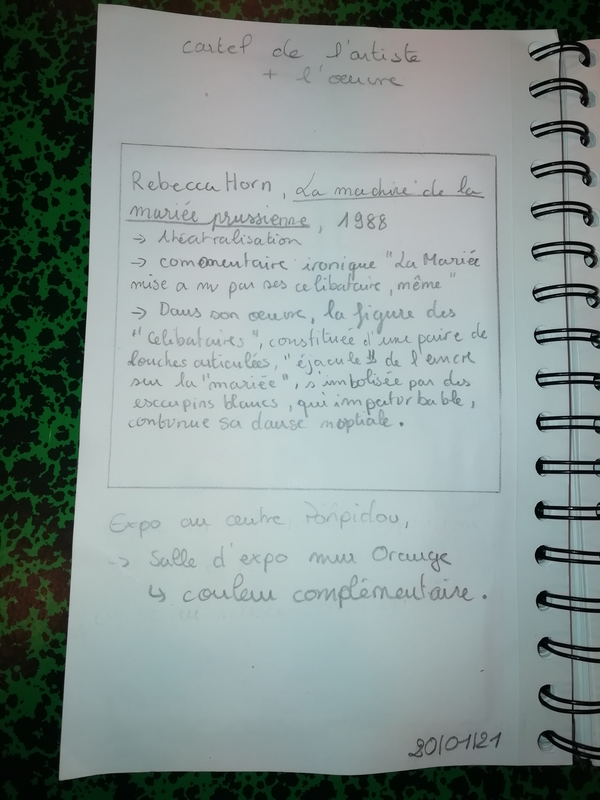 cartel de l'artiste
+ l'œuvre
Rebecca Horn, La machine de la
mariée prussienne, 1988
→ théatralisation
→ commentaire ironique "La Mariée
mise a nu par ses celibataire, même"
→ Dans son œuvre, la figure des
"Celibataires", constituée d'une paire de
louches articulées, "éjacule" de l'encre
sur la "mariée", s'imbolisée par des
escarpins blancs, qui imperturbable,
continue sa danse nuptiale.
Expo au centre Pompidou,
→ Salle d'expo mur Orange
↳ couleur complémentaire.
20/01/21